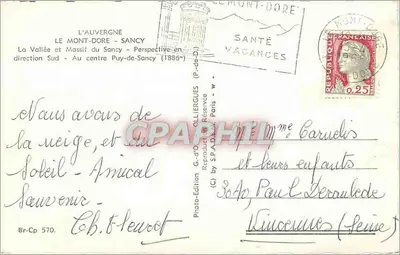 L'AUVERGNE
LE MONT-DORE - SANCY
La Vallée et Massif du Sancy - Perspective en
direction Sud - Au centre Puy-de-Sancy (1886m)
LE MONT-DORE
SANTÉ
VACANCES
MONT-DORE
REPUBLIQUE FRANÇAISE
0,25
Nous avons de
la neige, et du
Soleil - Amical
Souvenir -
Ch. Fleuret
Br-Cp 570.
Photo-Edition G. d'O OLLIERGUES (P.-de-D.)
Reproduction Réservée
(c) by S.P.A.D.E.M. Paris - W
CPARPHIL
Mr Mme
et leurs enfants
30 Av. Paul Deroulede
Vincennes (Seine)